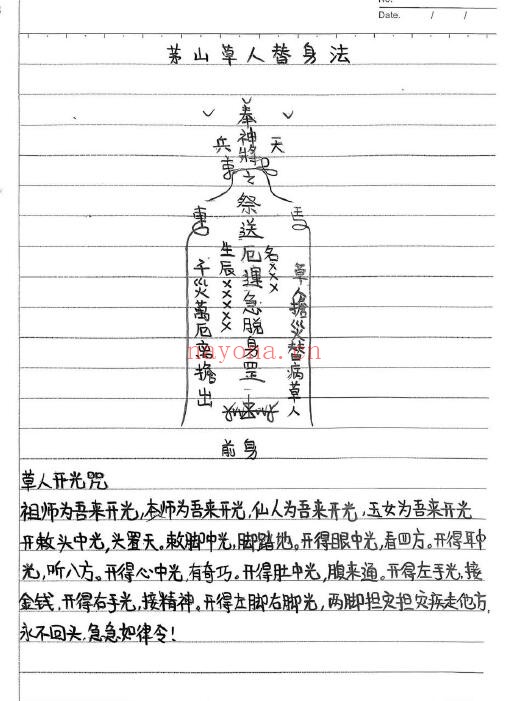 No.
Date. / /
茅山草人替身法
奉神將之祭送厄運急脱身罡
兵
天
名×××
生辰×××××
草人擔災替病草人
千災萬厄草擔出
nayona.cn
前身
草人开光咒
祖师为吾来开光,本师为吾来开光,仙人为吾来开光,玉女为吾来开光
开敕头中光,头置天。敕脚中光,脚踏地。开得眼中光,看四方。开得耳中
光,听八方。开得心中光,有奇巧。开得肚中光,腹来通。开得左手光,接
金钱,开得右手光,接精神。开得左脚右脚光,两脚担灾担灾疾走他方,
永不回头,急急如律令!